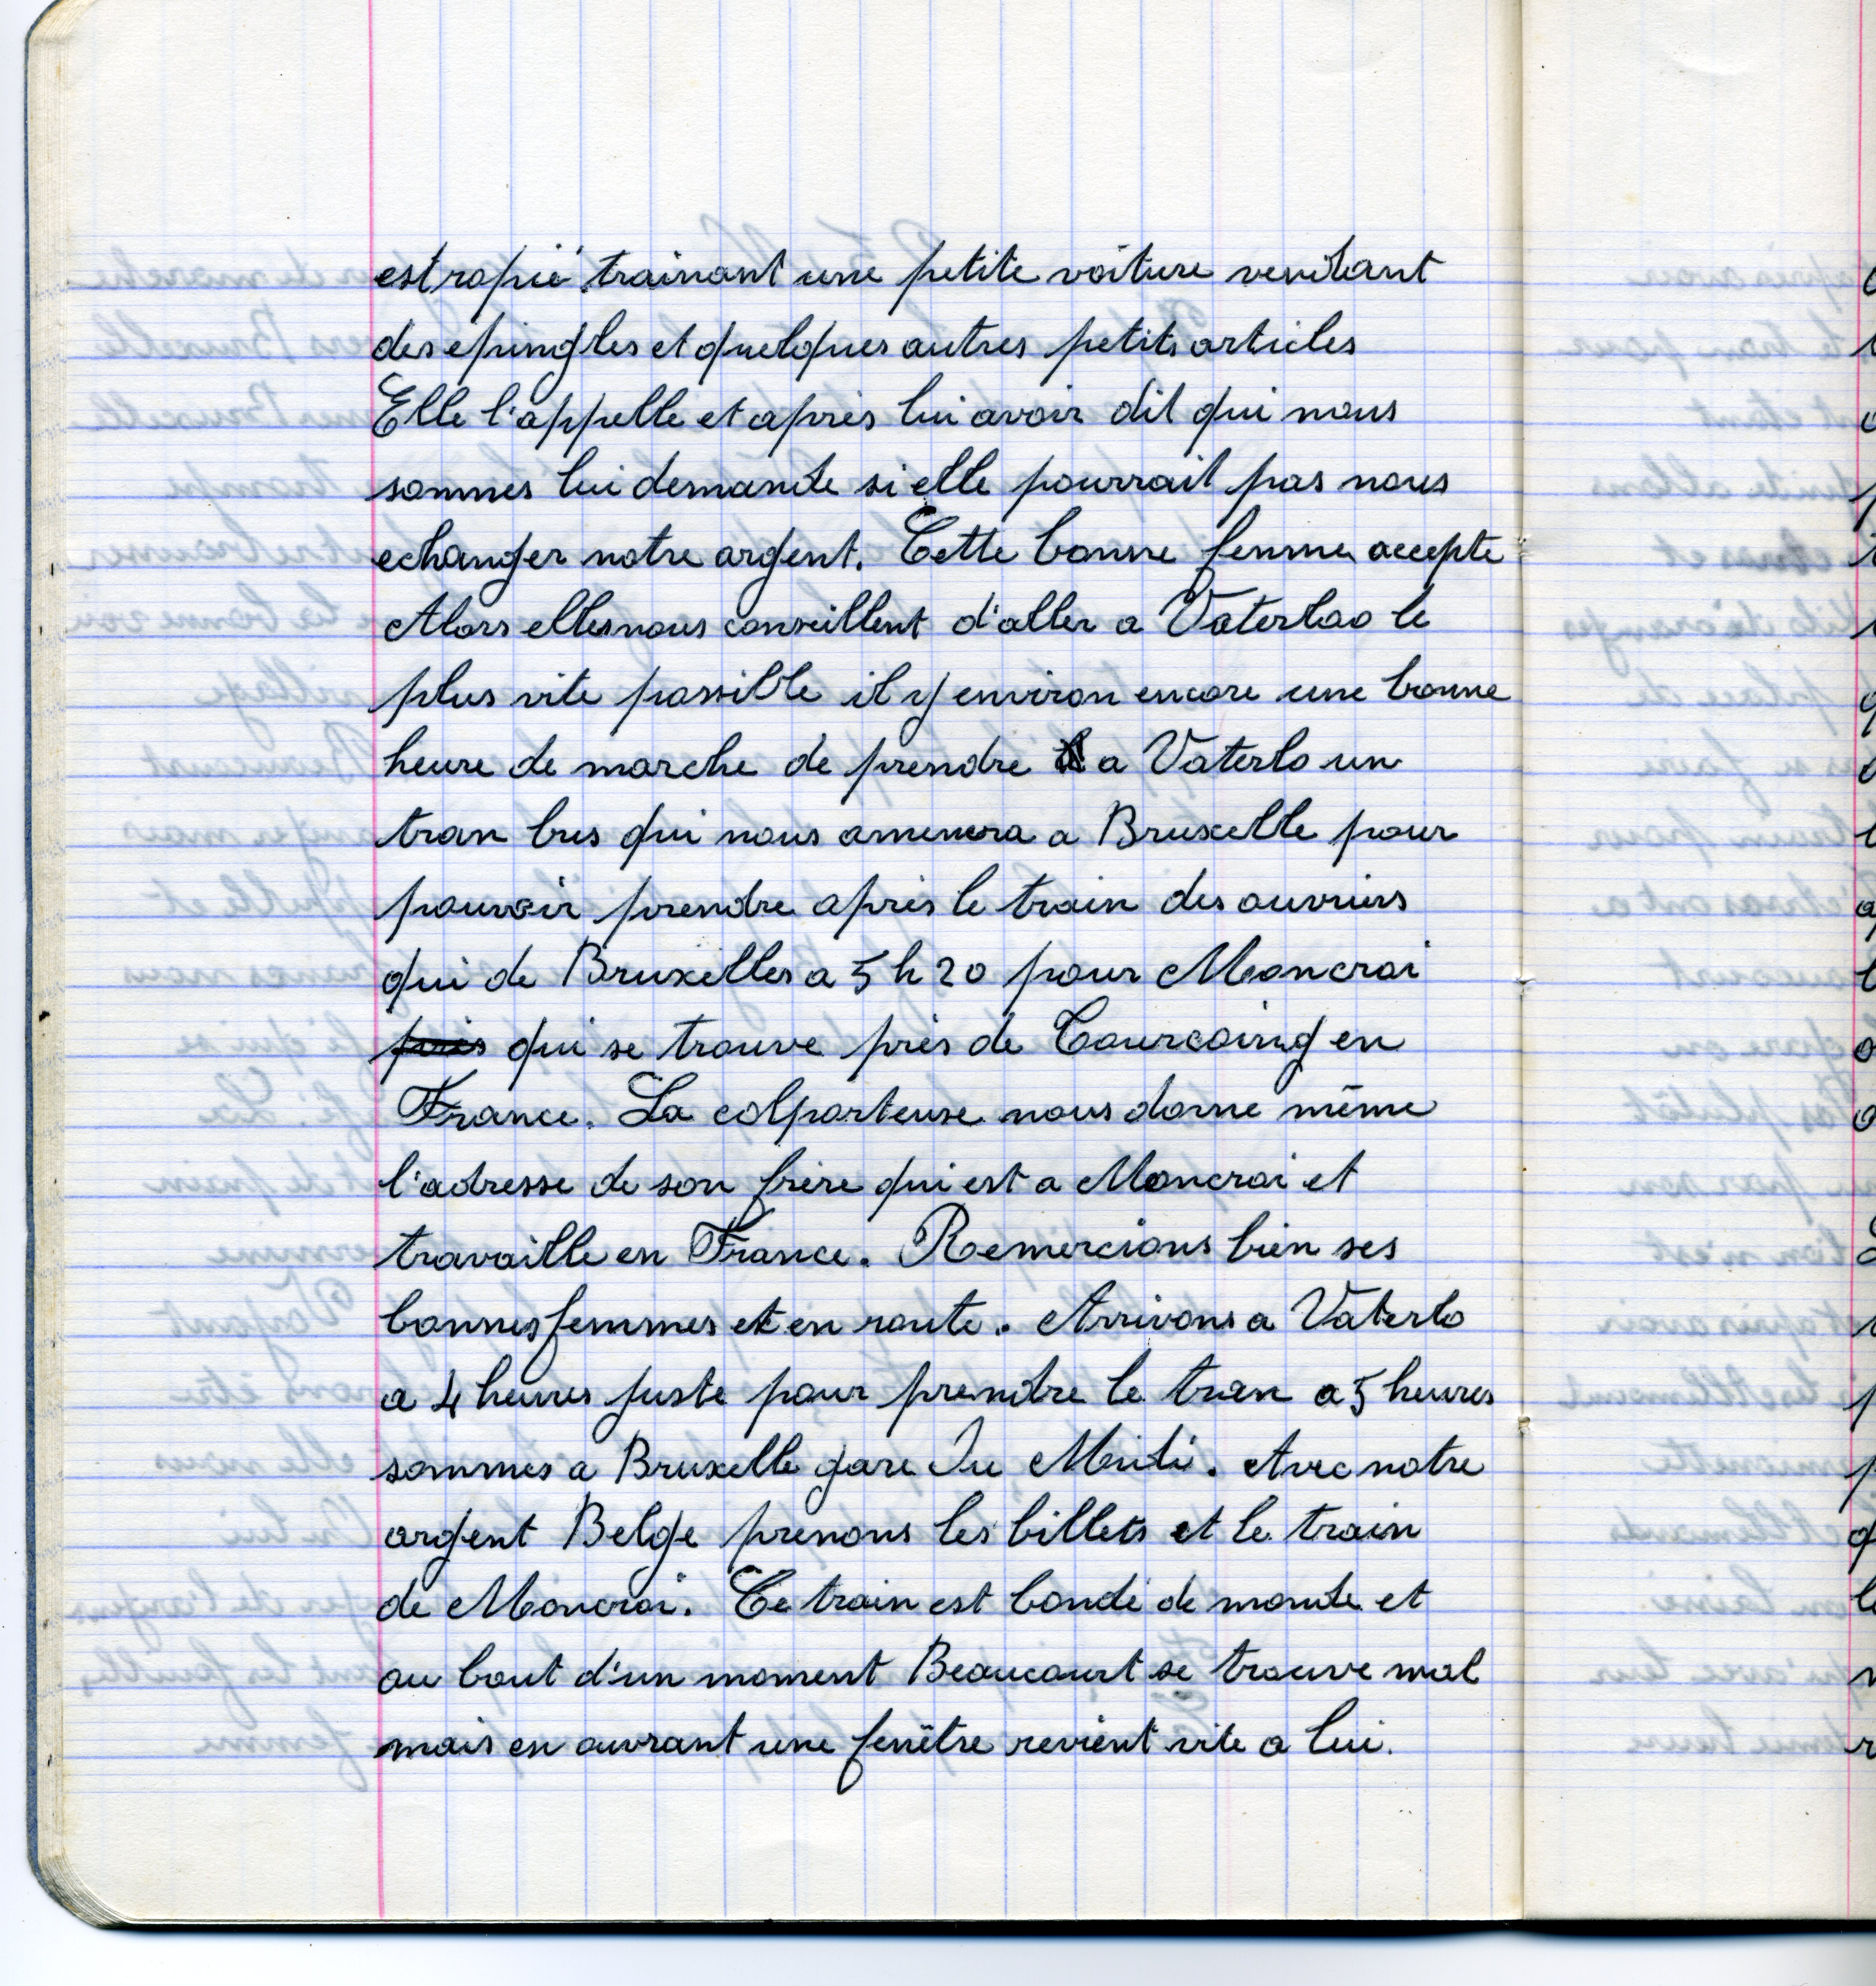 estropié trainant une petite voiture vendant
des epingles et quelques autres petits articles
Elle l'appelle et après lui avoir dit qui nous
sommes lui demande si elle pourrait pas nous
echanger notre argent. Cette bonne femme accepte
Alors elles nous conseillent d'aller a Vaterloo le
plus vite possible il y environ encore une bonne
heure de marche de prendre a Vaterlo un
tran bus qui nous amenera a Bruxelle pour
pouvoir prendre après le train des ouvriers
qui de Bruxelles a 5 h 20 pour Moncroi
près qui se trouve près de Tourcoing en
France. La colporteuse nous donne même
l'adresse de son frère qui est a Moncroi et
travaille en France. Remercions bien ses
bonnes femmes et en route. Arrivons a Vaterlo
a 4 heures juste pour prendre le tran a 5 heures
sommes a Bruxelle gare du Midi. Avec notre
argent Belge prenons les billets et le train
de Moncroi. Ce train est bondé de monde et
au bout d'un moment Beaucourt se trouve mal
mais en ouvrant une fenêtre revient vite a lui.